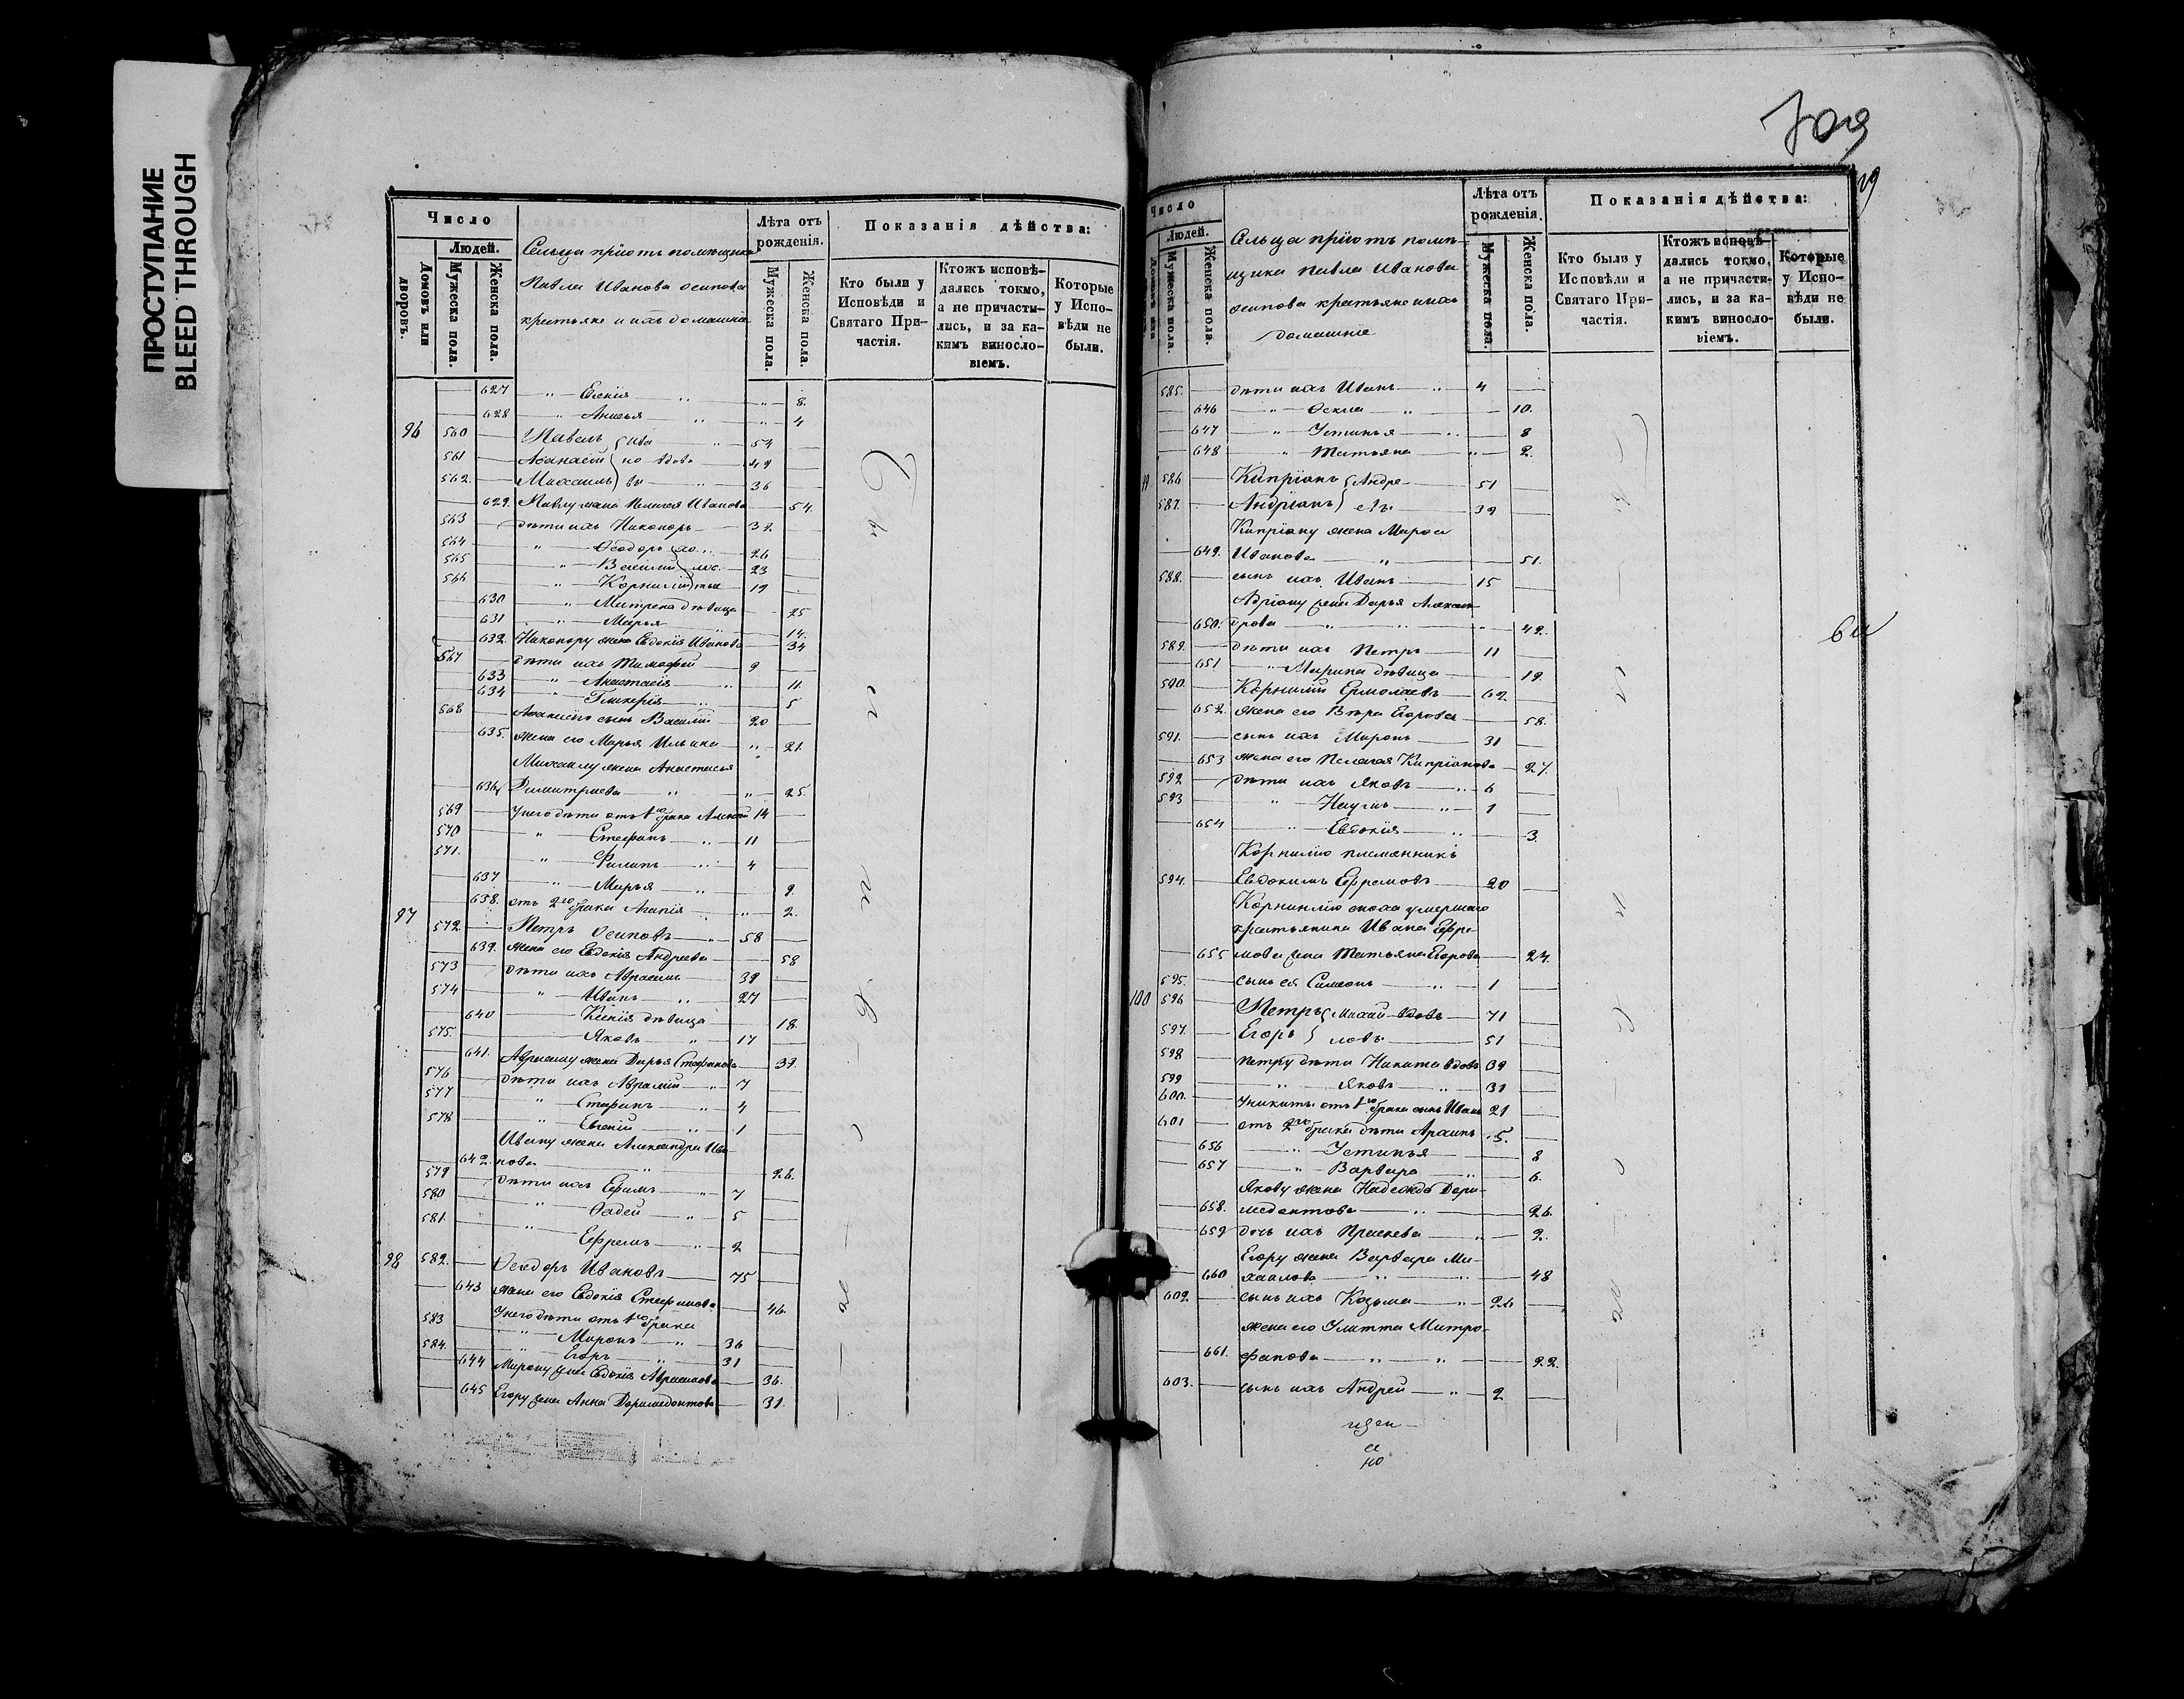 ПРОСТУПАНИЕ
BLEED THROUGH
Число
Людей.
Домовъ или дворовъ.
Мужеска пола.
Женска пола.
Сельца пріютъ помѣщика
Павла Иванова Осипова
крестьяне и ихъ домашніе
Лѣта отъ рожденія.
Мужеска пола.
Женска пола.
Показанія дѣйства:
Кто были у Исповѣди и Святаго Причастія.
Ктожъ исповѣдались токмо, а не причастились, и за какимъ винословіемъ.
Которые у Исповѣди не были.
627 " Евгенія " " 8.
628 " Анисья " " 4
96 560 Павелъ Ива " 54
561 Афанасій но вдовъ 49
562. Михаилъ вы " 36
629. Павлу жена Пелагея Иванова 54.
563 дѣти ихъ Никоноръ 32.
564 " Ѳеодоръ хо " 26
565 " Василій лос 23
566 " Корнилій тые 19
630 " Матрена дѣвица 25
631 " Марья 14.
632. Никонору жена Евдокія Иванова 34
567 дѣти ихъ Тимофей 9
633 " Анастасія " 11.
634 " Гликерія " 5
568 Афанасію сынъ Василій 20
635. жена его Марья Ильина " 21.
Михаилу жена Анастасья
636. Димитриева " " 25.
569 У него дѣти отъ 1го брака Алексѣй 14
570 " Стефанъ " 11
571. " Филипъ " 4
637 " Марья " 9.
638. отъ 2го брака Агапія " 2.
97 572 Петръ Осиповъ " 58
639. жена его Евдокія Андреева 58
573 дѣти ихъ Авраамъ 39
574 " Иванъ " 27
640 Ксенія дѣвица 18.
575. Яковъ " 17
641. Аврааму жена Дарья Стефанова 39.
576 дѣти ихъ Аврамій " 7
577 " Стефанъ " 4
578 " Евгеній " 1
Ивану жена Александра Ива
642. нова " 26.
579 дѣти ихъ Ефимъ " 7
580 " Фадей " 5
581. " Ефремъ " 2
98 582. Ѳеодоръ Ивановъ 75
643 жена его Евдокія Стефанова 46.
У него дѣти отъ 1го брака
583 " Миронъ " 36
584. " Егоръ " 31
644 Мирону жена Евдокія Авраамова 36.
645 Егору жена Анна Доримедонтова 31.
709
Число
Людей.
Мужеска пола.
Женска пола.
Сельца пріютъ помѣ-
щика Павла Иванова
Осипова крестьяне и ихъ
домашніе
Лѣта отъ рожденія.
Мужеска пола.
Женска пола.
Показанія дѣйства:
Кто были у Исповѣди и Святаго Причастія.
Ктожъ исповѣдались токмо, а не причастились, и за какимъ винословіемъ.
Которые у Исповѣди не были.
585. дѣти ихъ Иванъ " 4
646 " " 10.
647 " Устинья " 8
648 " Татьяна " 2.
526 Кипріанъ Андре 51
587. Андріанъ евы 39
Кипріану жена Марфа
649. Иванова " 51.
588. сынъ ихъ Иванъ 15
Адріану жена Дарья Алексан
650. дрова " " " 42.
589. дѣти ихъ Петръ 11
651 " Марина дѣвица 19.
590. Корнилій Ермолаевъ 62.
652. жена его Вѣра Егорова 58.
591. сынъ ихъ Миронъ 31
653 жена его Пелагея Кипріанова 27.
592 дѣти ихъ Яковъ " 6
593 " Наумъ " 1
654 " Евдокія " 3.
Корнилію племянникъ
594. Евдокимъ Ефремовъ 20
Корнилію сноха умершаго
крестьянина Ивана Ефре-
655 мова жена Татьяна Егорова 24.
595. сынъ ея Симеонъ " 1
100 596 Петръ Михай вдовъ 71
597. Егоръ ловы 51
598 Петру дѣти Никита вдовъ 39
599 " Яковъ " 31
600. У никиты отъ 1го брака сынъ Иванъ 21
601 отъ 2го брака дѣти 5.
656 " Устинья 8
657 " Варвара " 6.
Якову жена Надежда Дори-
658. медонтова " 26.
659 дочь ихъ Праскева " 2.
Егору жена Варвара Ми-
660 хайлова " " 48
602. сынъ ихъ Козьма " 26
жена его Улитта Митро-
661. фанова " " 22.
603. сынъ ихъ Андрей " 2